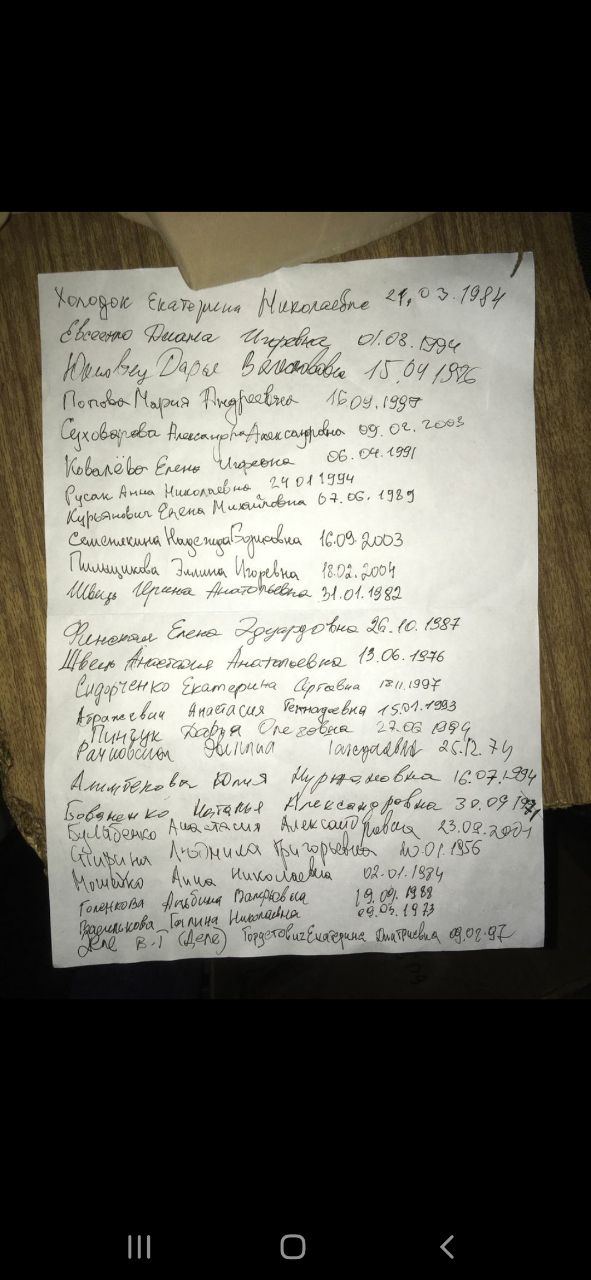 Холодок Екатерина Николаевна 21.03.1984
Евсеенко Диана Игоревна 01.08.1994
Дарья 15.04 1986
Попова Мария Андреевна 16 09.1997
Александра Александровна 09.02.2003
Ковалёва Елена Игоревна 06.04.1991
Русак Анна Николаевна 24 01 1994
Курьянович Елена Михайловна 07.06.1989
Надежда Борисовна 16.09.2003
Пильщикова Эллина Игоревна 18.02.2004
Швець Ирина Анатольевна 31.01.1982
Финская Елена Эдуардовна 26.10.1987
Швець Анастасия Анатольевна 13.06.1976
Сидорченко Екатерина 18.11.1997
Абрамевич Анастасия Геннадьевна 15.01.1993
Пинчук Дарья Олеговна 27.06 1994
25.12.74
Алимбекова Юлия Нуржановна 16.07.1994
Бованенко Наталья Александровна 30.09
Анастасия Александровна 23.09.2001
Спирина Людмила Григорьевна 10.01.1956
Анна Николаевна 02.01.1984
Голенкова Альбина Валерьевна 19.09.1988
Галина Николаевна 09.03.1973
Деле в.г (Деле) Екатерина Дмитриевна 09.02.97